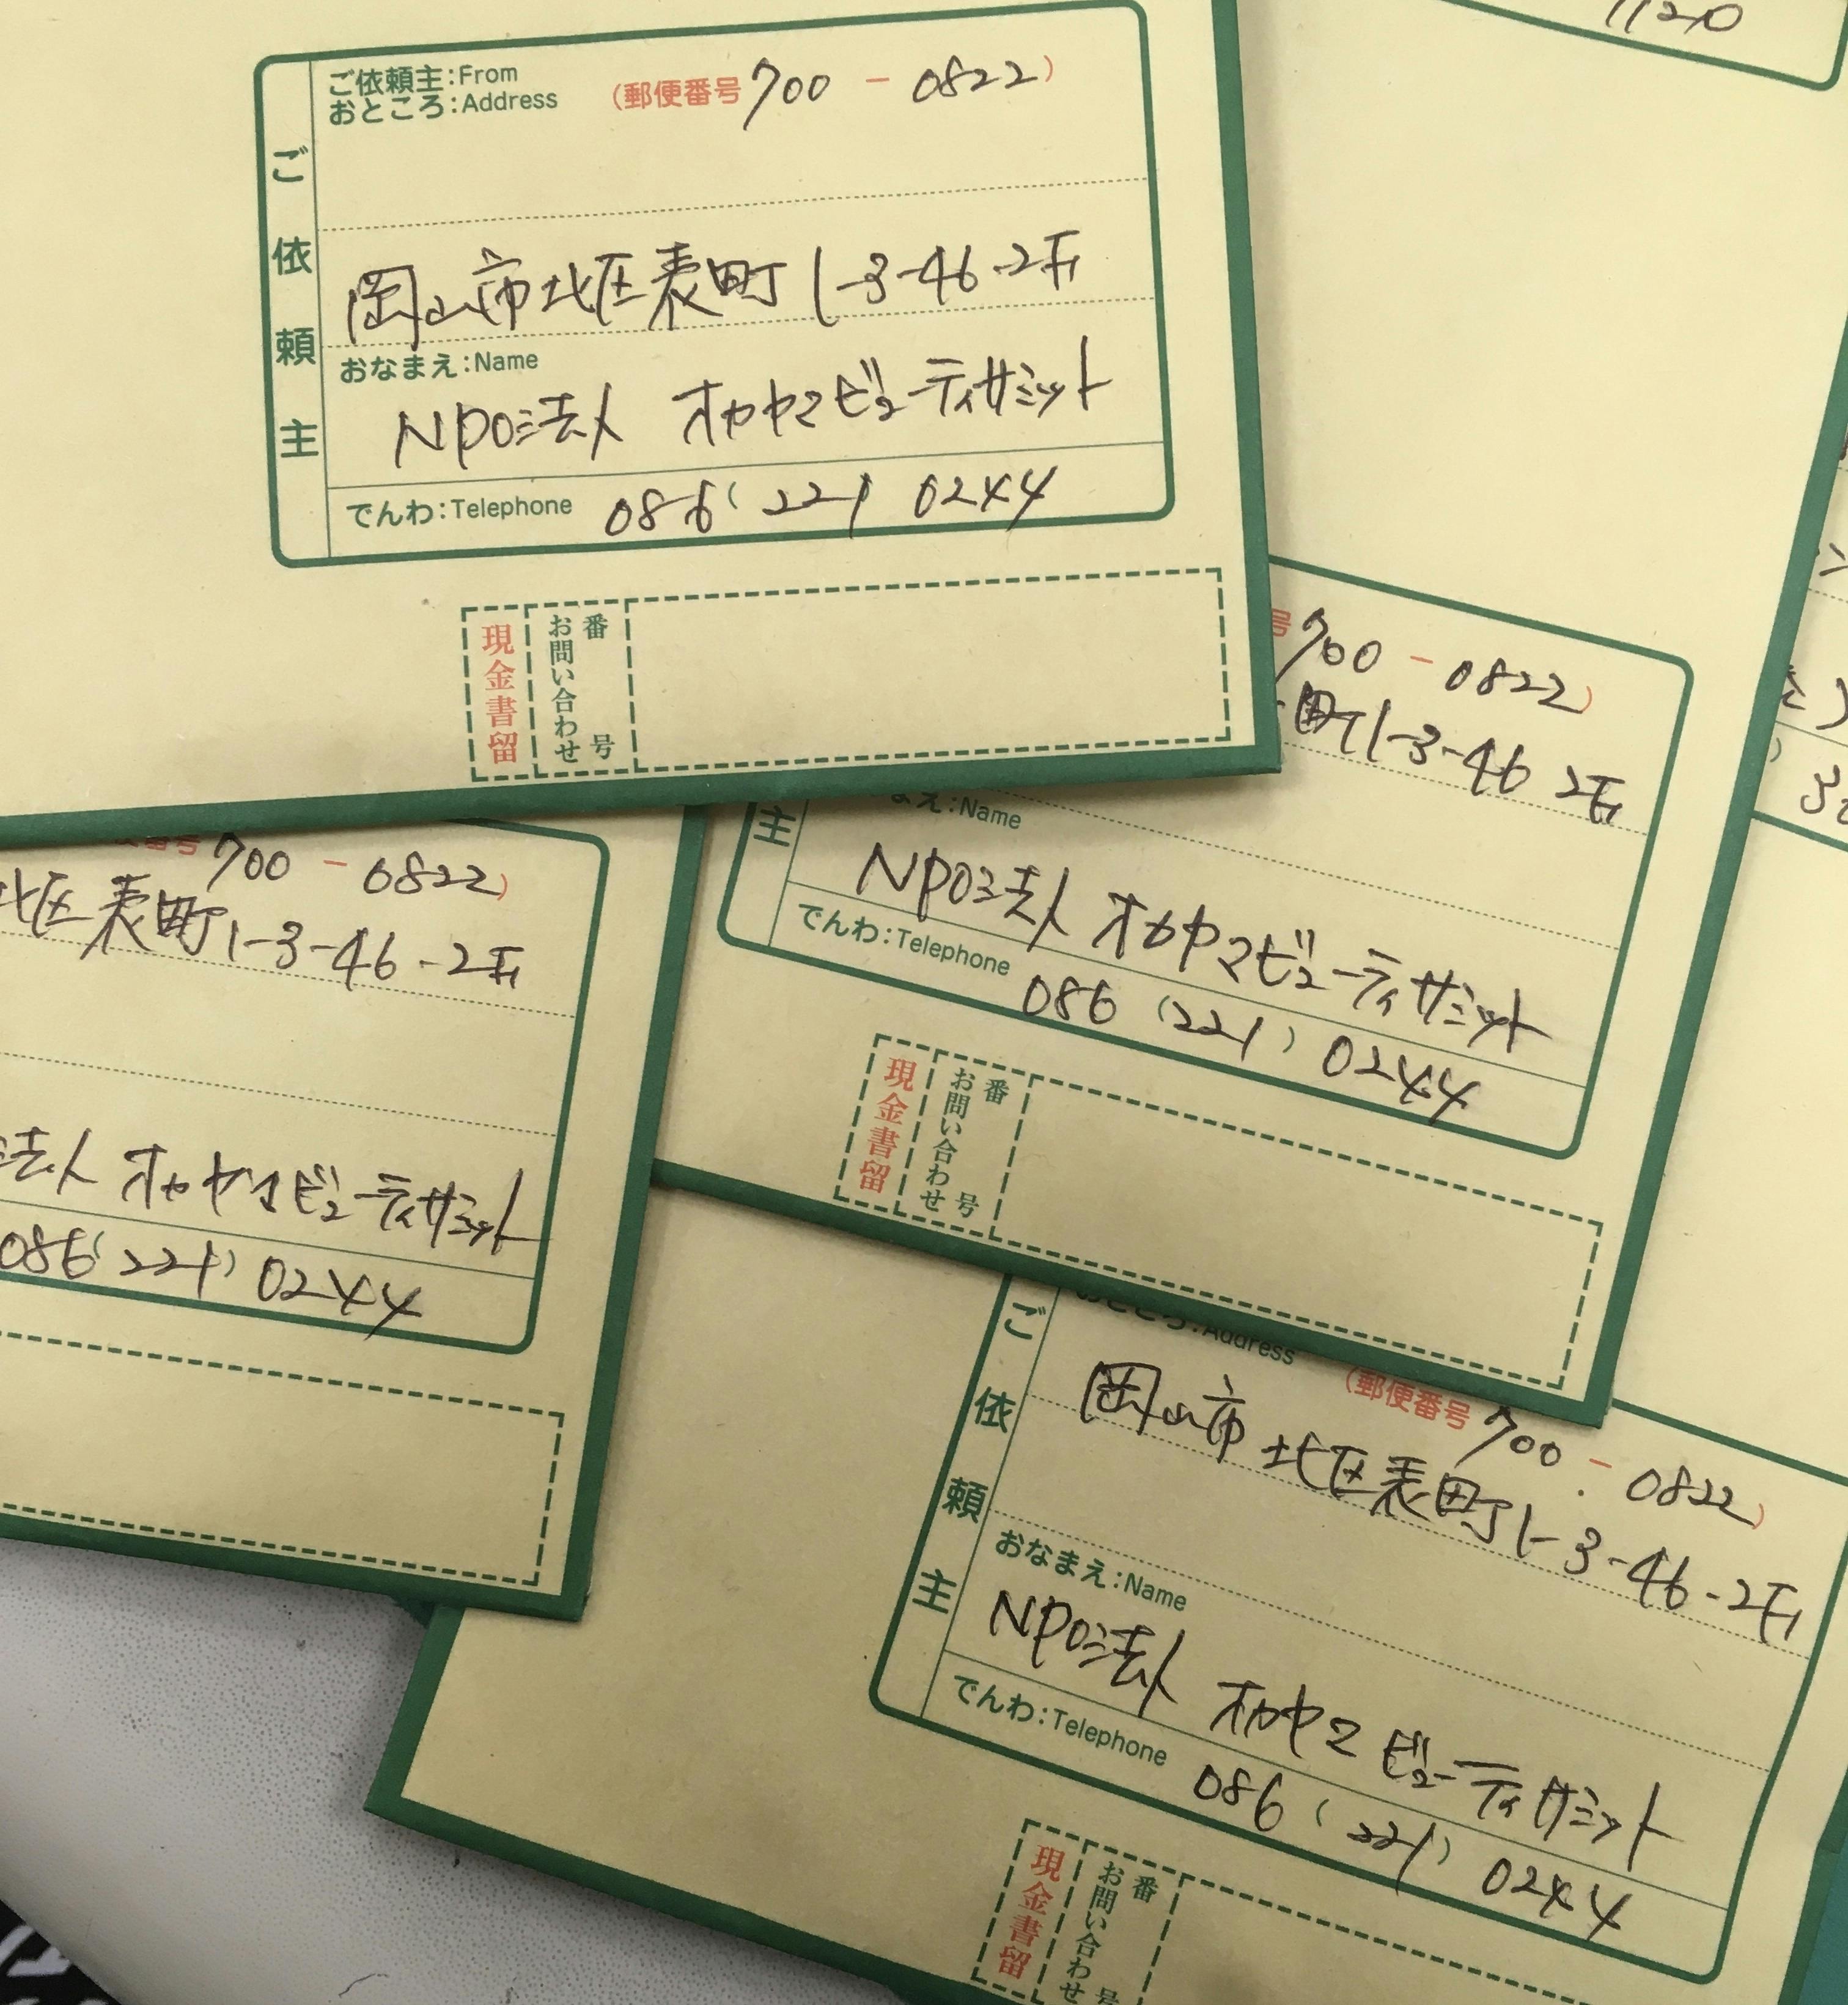 1120
ご依頼主
ご依頼主:From
おところ:Address (郵便番号 700 - 0822)
岡山市北区表町1-3-46-2F
おなまえ:Name
NPO法人 オカヤマビューティサミット
でんわ:Telephone 086(221) 0244
現金書留
お問い合わせ
番号
号 700 - 0822)
町1-3-46 2F
主
まえ:Name
NPO法人 オカヤマビューティサミット
でんわ:Telephone 086 (221) 0244
現金書留
お問い合わせ
番号
番号 700 - 0822)
北区表町1-3-46-2F
法人 オカヤマビューティサミット
086(221) 0244
ご依頼主
おところ:Address (郵便番号 700 - 0822)
岡山市北区表町1-3-46-2F
おなまえ:Name
NPO法人 オカヤマビューティサミット
でんわ:Telephone 086 (221) 0244
現金書留
お問い合わせ
番号